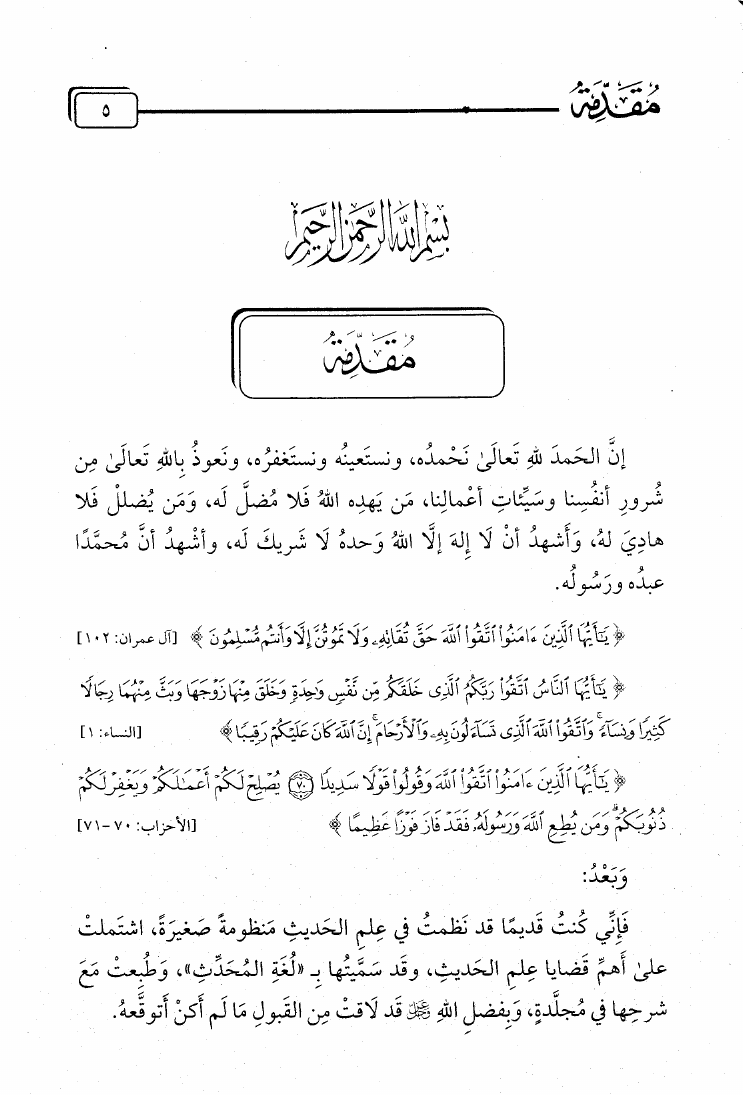 مُقَدِّمَةٌ
٥
بِسْمِ اللَّهِ الرَّحْمَنِ الرَّحِيمِ
مُقَدِّمَةٌ
إنَّ الحَمدَ للهِ تَعالَىٰ نَحْمدُه، ونستَعينُه ونستَغفرُه، ونَعوذُ بِاللهِ تَعالَىٰ مِن
شُرورِ أنفُسِنا وسَيِّئاتِ أعْمالِنا، مَن يَهدِه اللهُ فَلا مُضلَّ لَه، وَمَن يُضللْ فَلا
هادِيَ لهُ، وَأَشهدُ أنْ لَا إِلهَ إلَّا اللهُ وَحدهُ لَا شَريكَ لَه، وأشْهدُ أنَّ مُحمَّدًا
عبدُه ورَسُولُه.
﴿ يَٰٓأَيُّهَا ٱلَّذِينَ ءَامَنُوا۟ ٱتَّقُوا۟ ٱللَّهَ حَقَّ تُقَاتِهِۦ وَلَا تَمُوتُنَّ إِلَّا وَأَنتُم مُّسْلِمُونَ ﴾ [آل عمران: ١٠٢]
﴿ يَٰٓأَيُّهَا ٱلنَّاسُ ٱتَّقُوا۟ رَبَّكُمُ ٱلَّذِى خَلَقَكُم مِّن نَّفْسٍ وَٰحِدَةٍ وَخَلَقَ مِنْهَا زَوْجَهَا وَبَثَّ مِنْهُمَا رِجَالًا
كَثِيرًا وَنِسَآءً ۚ وَٱتَّقُوا۟ ٱللَّهَ ٱلَّذِى تَسَآءَلُونَ بِهِۦ وَٱلْأَرْحَامَ ۚ إِنَّ ٱللَّهَ كَانَ عَلَيْكُمْ رَقِيبًا ﴾ [النساء: ١]
﴿ يَٰٓأَيُّهَا ٱلَّذِينَ ءَامَنُوا۟ ٱتَّقُوا۟ ٱللَّهَ وَقُولُوا۟ قَوْلًا سَدِيدًا ۝٧٠ يُصْلِحْ لَكُمْ أَعْمَٰلَكُمْ وَيَغْفِرْ لَكُمْ
ذُنُوبَكُمْ ۗ وَمَن يُطِعِ ٱللَّهَ وَرَسُولَهُۥ فَقَدْ فَازَ فَوْزًا عَظِيمًا ﴾ [الأحزاب: ٧٠-٧١]
وَبَعْدُ:
فَإِنِّي كُنتُ قَديمًا قد نَظمتُ في عِلمِ الحَديثِ مَنظومةً صَغيرَةً، اشتَملتْ
علىٰ أَهمِّ قَضايا علمِ الحَديثِ، وقَد سَمَّيتُها بِـ «لُغَةِ المُحَدِّثِ»، وَطُبِعتْ مَعَ
شرحِها في مُجلَّدةٍ، وَبِفضلِ اللهِ ﷿ قَد لَاقتْ مِن القَبولِ مَا لَم أكنْ أتوقَّعهُ.